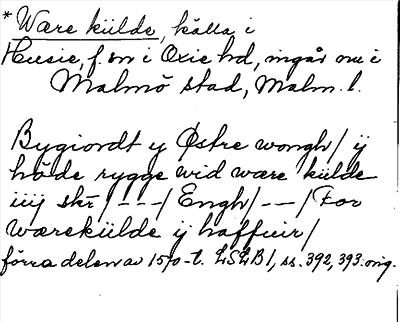 * Wære kiilde, källa i
Husie, f. sn i Oxie hd, ingår nu i
Malmö stad, Malm. l.
Bygiordt y Østre wongh/ ÿ
høde rygge wid wære kiilde
iiij skr/ - - -/ Engh/ - -/ For
wærekiilde ÿ haffuir/
förra delen av 1570-t. LSLB 1, ss. 392, 393. orig.